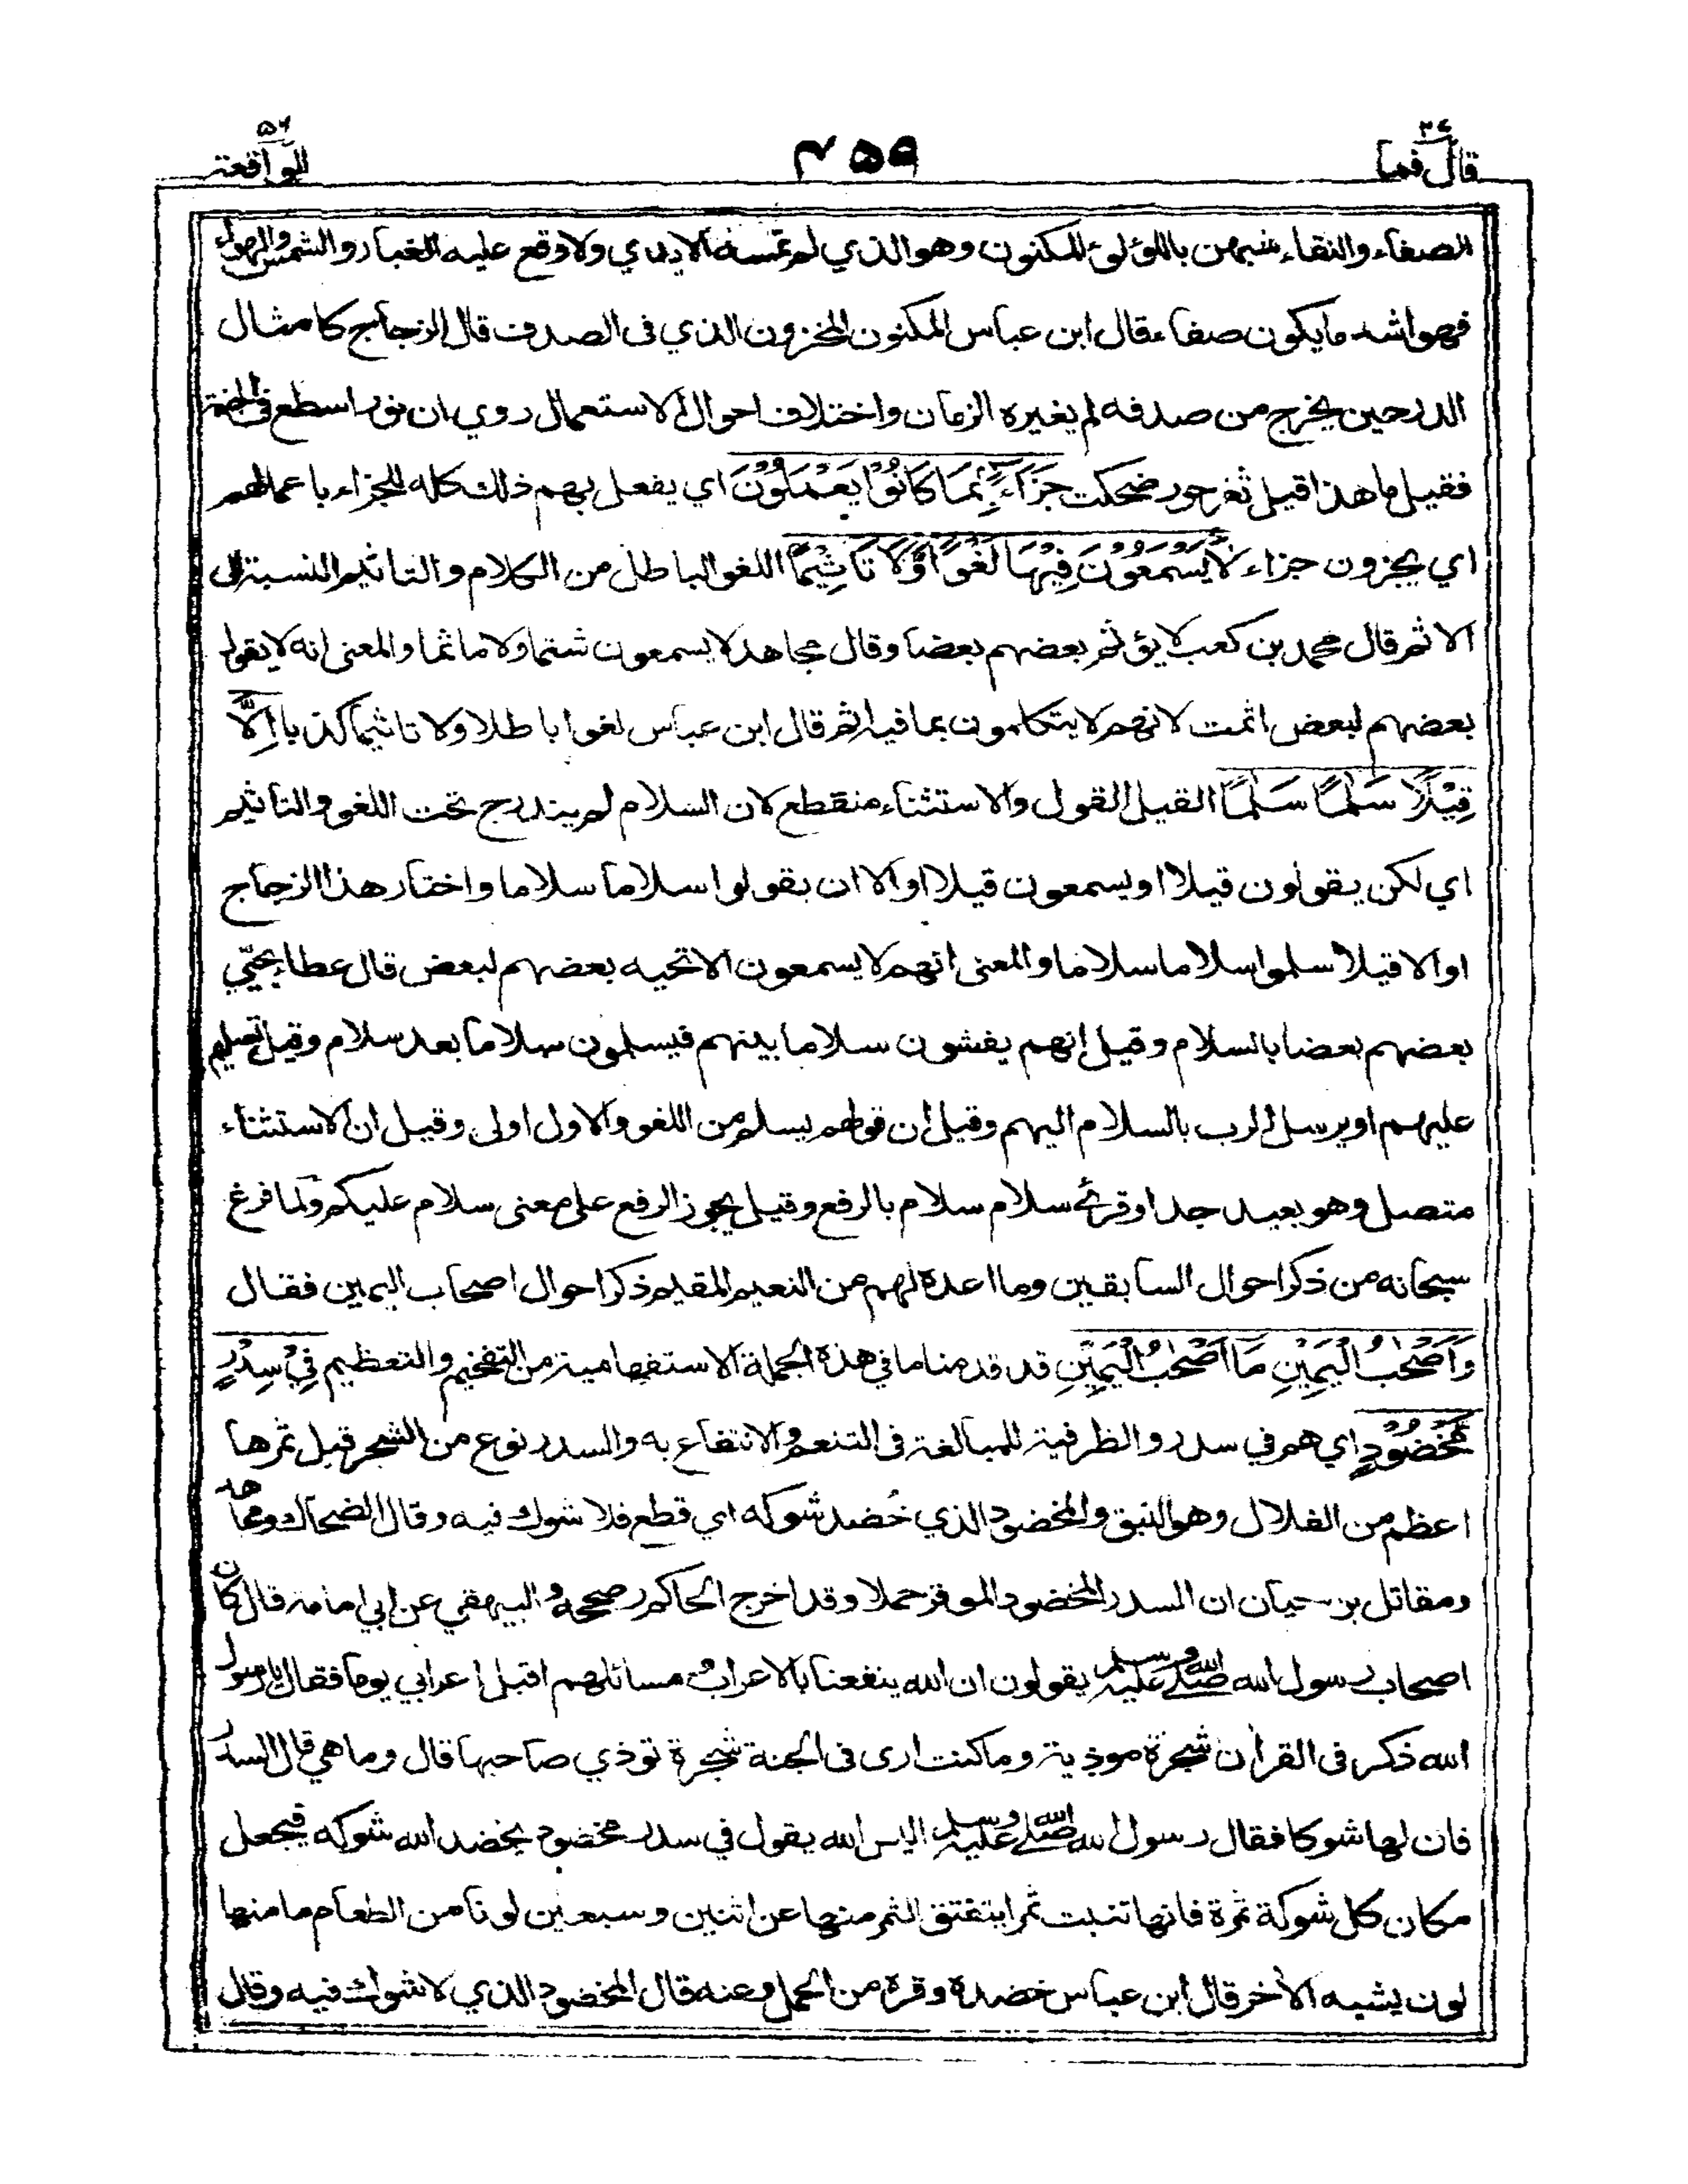 قال فما ٢٧
٤٥٩
الواقعة ٥٦
الصفاء والنقاء شبههن باللؤلؤ المكنون وهو الذي لم تمسه الايدي ولا وقع عليه الغبار والشمس والهواء
فهو اشد ما يكون صفاء قال ابن عباس المكنون المخزون الذي فى الصدف قال الزجاج كامثال
الدر حين يخرج من صدفه لم يغيره الزمان واختلاف احوال الاستعمال روي ان نورا سطع فى الجنة
فقيل ما هذا قيل ثغر حور ضحكت جَزَآءًۢ بِمَا كَانُوْا يَعْمَلُوْنَ اي يفعل بهم ذلك كله للجزاء باعمالهم
اي يجزون جزاء لَا يَسْمَعُوْنَ فِيْهَا لَغْوًا وَّلَا تَاْثِيْمًا اللغو الباطل من الكلام والتاثيم النسبة الى
الاثم قال محمد بن كعب لا يؤثم بعضهم بعضا وقال مجاهد لا يسمعون شتما ولا ماثما والمعنى انه لا يقول
بعضهم لبعض اثمت لانهم لا يتكلمون بما فيه اثم قال ابن عباس لغوا باطلا ولا تاثيما كذبا اِلَّا
قِيْلًا سَلٰمًا سَلٰمًا القيل القول والاستثناء منقطع لان السلام لم يندرج تحت اللغو والتاثيم
اي لكن يقولون قيلا او يسمعون قيلا او الا ان يقولوا سلاما سلاما واختار هذا الزجاج
او الا قيلا سلموا سلاما سلاما والمعنى انهم لا يسمعون الا تحيه بعضهم لبعض قال عطاء يحيّي
بعضهم بعضا بالسلام وقيل انهم يفشون سلاما بينهم فيسلمون سلاما بعد سلام وقيل تسليم
عليهم او يرسل الرب بالسلام اليهم وقيل ان قولهم يسلم من اللغو والاول اولى وقيل ان الاستثناء
متصل وهو بعيد جدا وقرئ سلام سلام بالرفع وقيل يجوز الرفع على معنى سلام عليكم ولما فرغ
سبحانه من ذكر احوال السابقين وما اعده لهم من النعيم المقيم ذكر احوال اصحاب اليمين فقال
وَاَصْحٰبُ الْيَمِيْنِ مَآ اَصْحٰبُ الْيَمِيْنِ قد قدمنا ما في هذه الجملة الاستفهامية من التفخيم والتعظيم فِيْ سِدْرٍ
مَّخْضُوْدٍ اي هم في سدر والظرفية للمبالغة فى التنعم والانتفاع به والسدر نوع من الشجر قيل ثمرها
اعظم من القلال وهو النبق والمخضود الذي خُضد شوكه اي قطع فلا شوك فيه وقال الضحاك ومجاهد
ومقاتل بن حيان ان السدر المخضود الموقر حملا وقد اخرج الحاكم وصححه والبيهقي عن ابي امامة قال كان
اصحاب رسول الله صلى الله عليه وسلم يقولون ان الله ينفعنا بالاعراب و مسائلهم اقبل اعرابي يوما فقال يا رسول
الله ذكر فى القران شجرة موذية وما كنت ارى فى الجنة شجرة توذي صاحبها قال وما هي قال السدر
فان لها شوكا فقال رسول الله صلى الله عليه وسلم اليس الله يقول في سدر مخضود يخضد الله شوكه فيجعل
مكان كل شوكة ثمرة فانها تنبت ثمرا يتفتق الثمر منها عن اثنين وسبعين لونا من الطعام ما منها
لون يشبه الآخر قال ابن عباس خضده وقره من الحمل وعنه قال المخضود الذي لا شوك فيه وقال